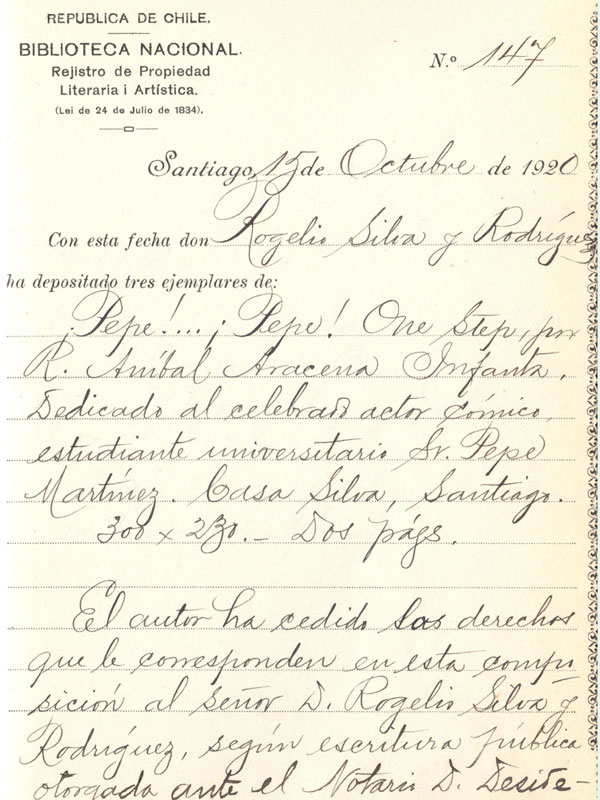 REPUBLICA DE CHILE.
BIBLIOTECA NACIONAL.
Rejistro de Propiedad
Literaria i Artística.
(Lei de 24 de Julio de 1834).
N.º 147
Santiago, 15 de Octubre de 1920
Con esta fecha don Rogelio Silva y Rodríguez
ha depositado tres ejemplares de:
¡Pepe!... ¡Pepe! One Step, por
R. Aníbal Aracena Infanta.
Dedicado al celebrado actor cómico,
estudiante universitario Sr. Pepe
Martínez. Casa Silva, Santiago.
300 x 230.- Dos págs.
El autor ha cedido los derechos
que le corresponden en esta compo
sición al señor D. Rogelio Silva y
Rodríguez, según escritura pública
otorgada ante el Notario D. Deside-